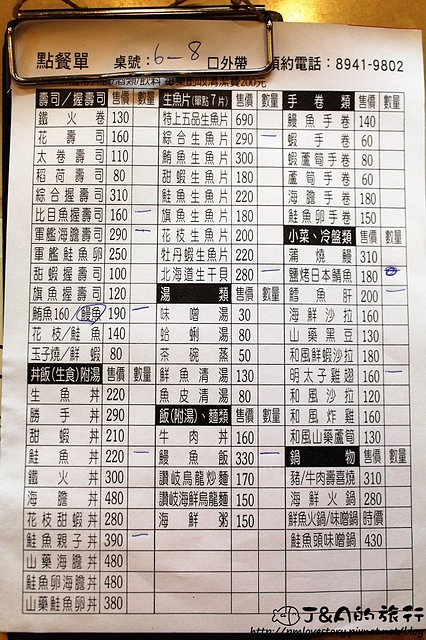 點餐單 桌號:6-8 口外帶 預約電話:8941-9802
壽司/握壽司 售價 數量
鐵火卷 130
花壽司 160
太卷壽司 110
稻荷壽司 80
綜合握壽司 310
比目魚握壽司 160
軍艦海膽壽司 290
軍艦鮭魚卵 250
甜蝦握壽司 100
旗魚握壽司 120
鮪魚160/鰻魚 190
花枝/鮭魚 140
玉子燒/鮮蝦 80
丼飯(生食)附湯 售價 數量
生魚丼 220
勝手丼 290
甜蝦丼 210
鮭魚丼 220
鐵火丼 300
海膽丼 480
花枝甜蝦丼 280
鮭魚親子丼 390
山藥海膽丼 480
鮭魚卵海膽丼 480
山藥鮭魚卵丼 380
生魚片(單點7片) 售價 數量
特上五品生魚片 690
綜合生魚片 290
鮪魚生魚片 300
甜蝦生魚片 180
鮭魚生魚片 220
旗魚生魚片 180
花枝生魚片 200
牡丹蝦生魚片 220
北海道生干貝 280
湯類 售價 數量
味噌湯 30
蛤蜊湯 80
茶碗蒸 50
鮮魚清湯 130
魚皮清湯 80
飯(附湯)、麵類 售價 數量
牛肉丼 160
鰻魚飯 330
讚岐烏龍炒麵 170
讚岐海鮮烏龍麵 150
海鮮粥 150
手卷類 售價 數量
鰻魚手卷 140
蝦手卷 60
蝦蘆筍手卷 80
蘆筍手卷 60
海膽手卷 180
鮭魚卵手卷 150
小菜、冷盤類 售價 數量
蒲燒鰻 310
鹽烤日本鯖魚 180
鱈魚肝 200
海鮮沙拉 160
山藥黑豆 130
和風鮮蝦沙拉 180
明太子雞翅 160
和風沙拉 120
和風炸雞 160
和風山藥蘆筍 130
鍋物 售價 數量
豬/牛肉壽喜燒 310
海鮮火鍋 280
鮮魚火鍋/味噌鍋 時價
鮭魚頭味噌鍋 430
J&A的旅行